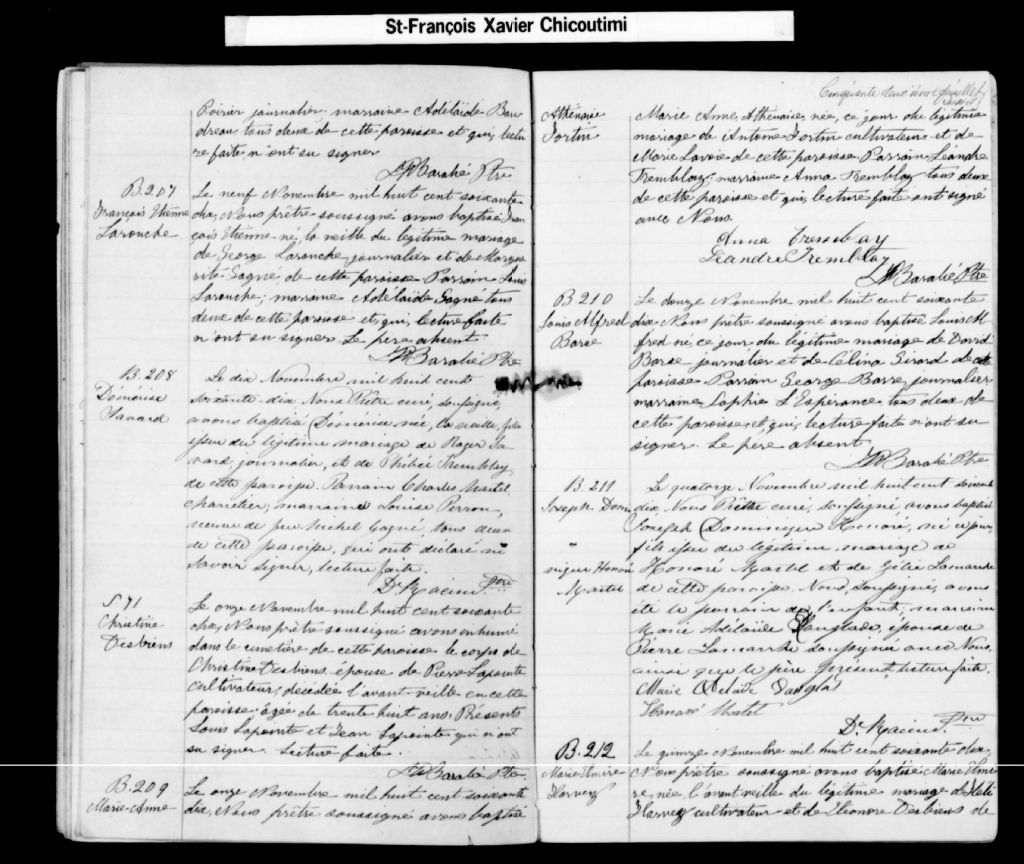 St-François Xavier Chicoutimi
Poirier journalier, marraine Adélaïde Bou
dreau, tous deux de cette paroisse et qui, lectu
re faite, n'ont su signer
Ptre
B. 207
François Etienne
Larouche
Le neuf Novembre mil huit cent soixante
dix, Nous prêtre soussigné avons baptisé Fran
çois Etienne né, la veille du légitime mariage
de George Larouche journalier et de Margue
rite Gagné de cette paroisse Parrain Louis
Larouche; marraine Adélaïde Gagné tous
deux de cette paroisse et, qui, lecture faite
n'ont su signer. Le père absent
Ptre
B. 208
Savard
Le dix Novembre mil huit cent
soixante-dix Nous Prêtre curé, soussigné,
avons baptisé née, la veille, fille
issue du légitime mariage de Roger Sa
vard, journalier, et de Phébée Tremblay
de cette paroisse. Parrain Charles Martel
charretier, marraine Louise Perron,
veuve de feu Michel Gagné, tous deux
de cette paroisse, qui ont déclaré ne
savoir signer, lecture faite.
D. Racine Ptre
S 71
Christine
Desbiens
Le onze Novembre mil huit cent soixante
dix, Nous prêtre soussigné avons inhumé
dans le cimetière de cette paroisse le corps de
Christine Desbiens, épouse de Pierre Lapointe
cultivateur, décédée l'avant veille en cette
paroisse âgée de trente huit ans. Présents
Louis Lapointe et Jean Lapointe qui n'ont
su signer. Lecture faite.
Ptre
B. 209
Marie-Anne
Le onze Novembre mil huit cent soixante
dix, Nous prêtre soussigné avons baptisé
Cinquante deuxième feuillet
Athénaise
Fortin
Marie Anne, Athénaise, née, ce jour du légitime
mariage de Antoine Fortin cultivateur et de
Marie Lavoie de cette paroisse Parrain Léandre
Tremblay; marraine Anna Tremblay tous deux
de cette paroisse et qui, lecture faite ont signé
avec Nous.
Anna Tremblay
Léandre Tremblay
Ptre
B. 210
Louis Alfred
Basse
Le douze Novembre mil huit cent soixante
dix Nous prêtre soussigné avons baptisé Louis Al
fred né, ce jour du légitime mariage de David
Basse journalier et de Célina Girard de cette
paroisse Parrain George Basse, journalier
marraine, Sophie L'Espérance tous deux de
cette paroisse, et, qui, lecture faite n'ont su
signer. Le père absent
Ptre
B. 211
Joseph Domi
nique Honoré
Martel
Le quatorze Novembre mil huit cent soixante
dix, Nous Prêtre curé, soussigné avons baptisé
Joseph Dominique Honoré, né ce jour,
fils issu du légitime mariage de
Honoré Martel et de Zélie Lamarche
de cette paroisse. Nous, soussigné, avons
été le parrain de l'enfant; marraine
Marie Adélaïde Danglade, épouse de
Pierre Lamarche soussignée avec Nous,
ainsi que le père présent, lecture faite.
Marie
Honoré Martel
D. Racine Ptre
B. 212
Marie
Harvey
Le quinze Novembre mil huit cent soixante dix,
Nous prêtre soussigné avons baptisé Marie Elmi
re, née, l'avant veille du légitime mariage de
Harvey cultivateur et de Eléonore Desbiens de